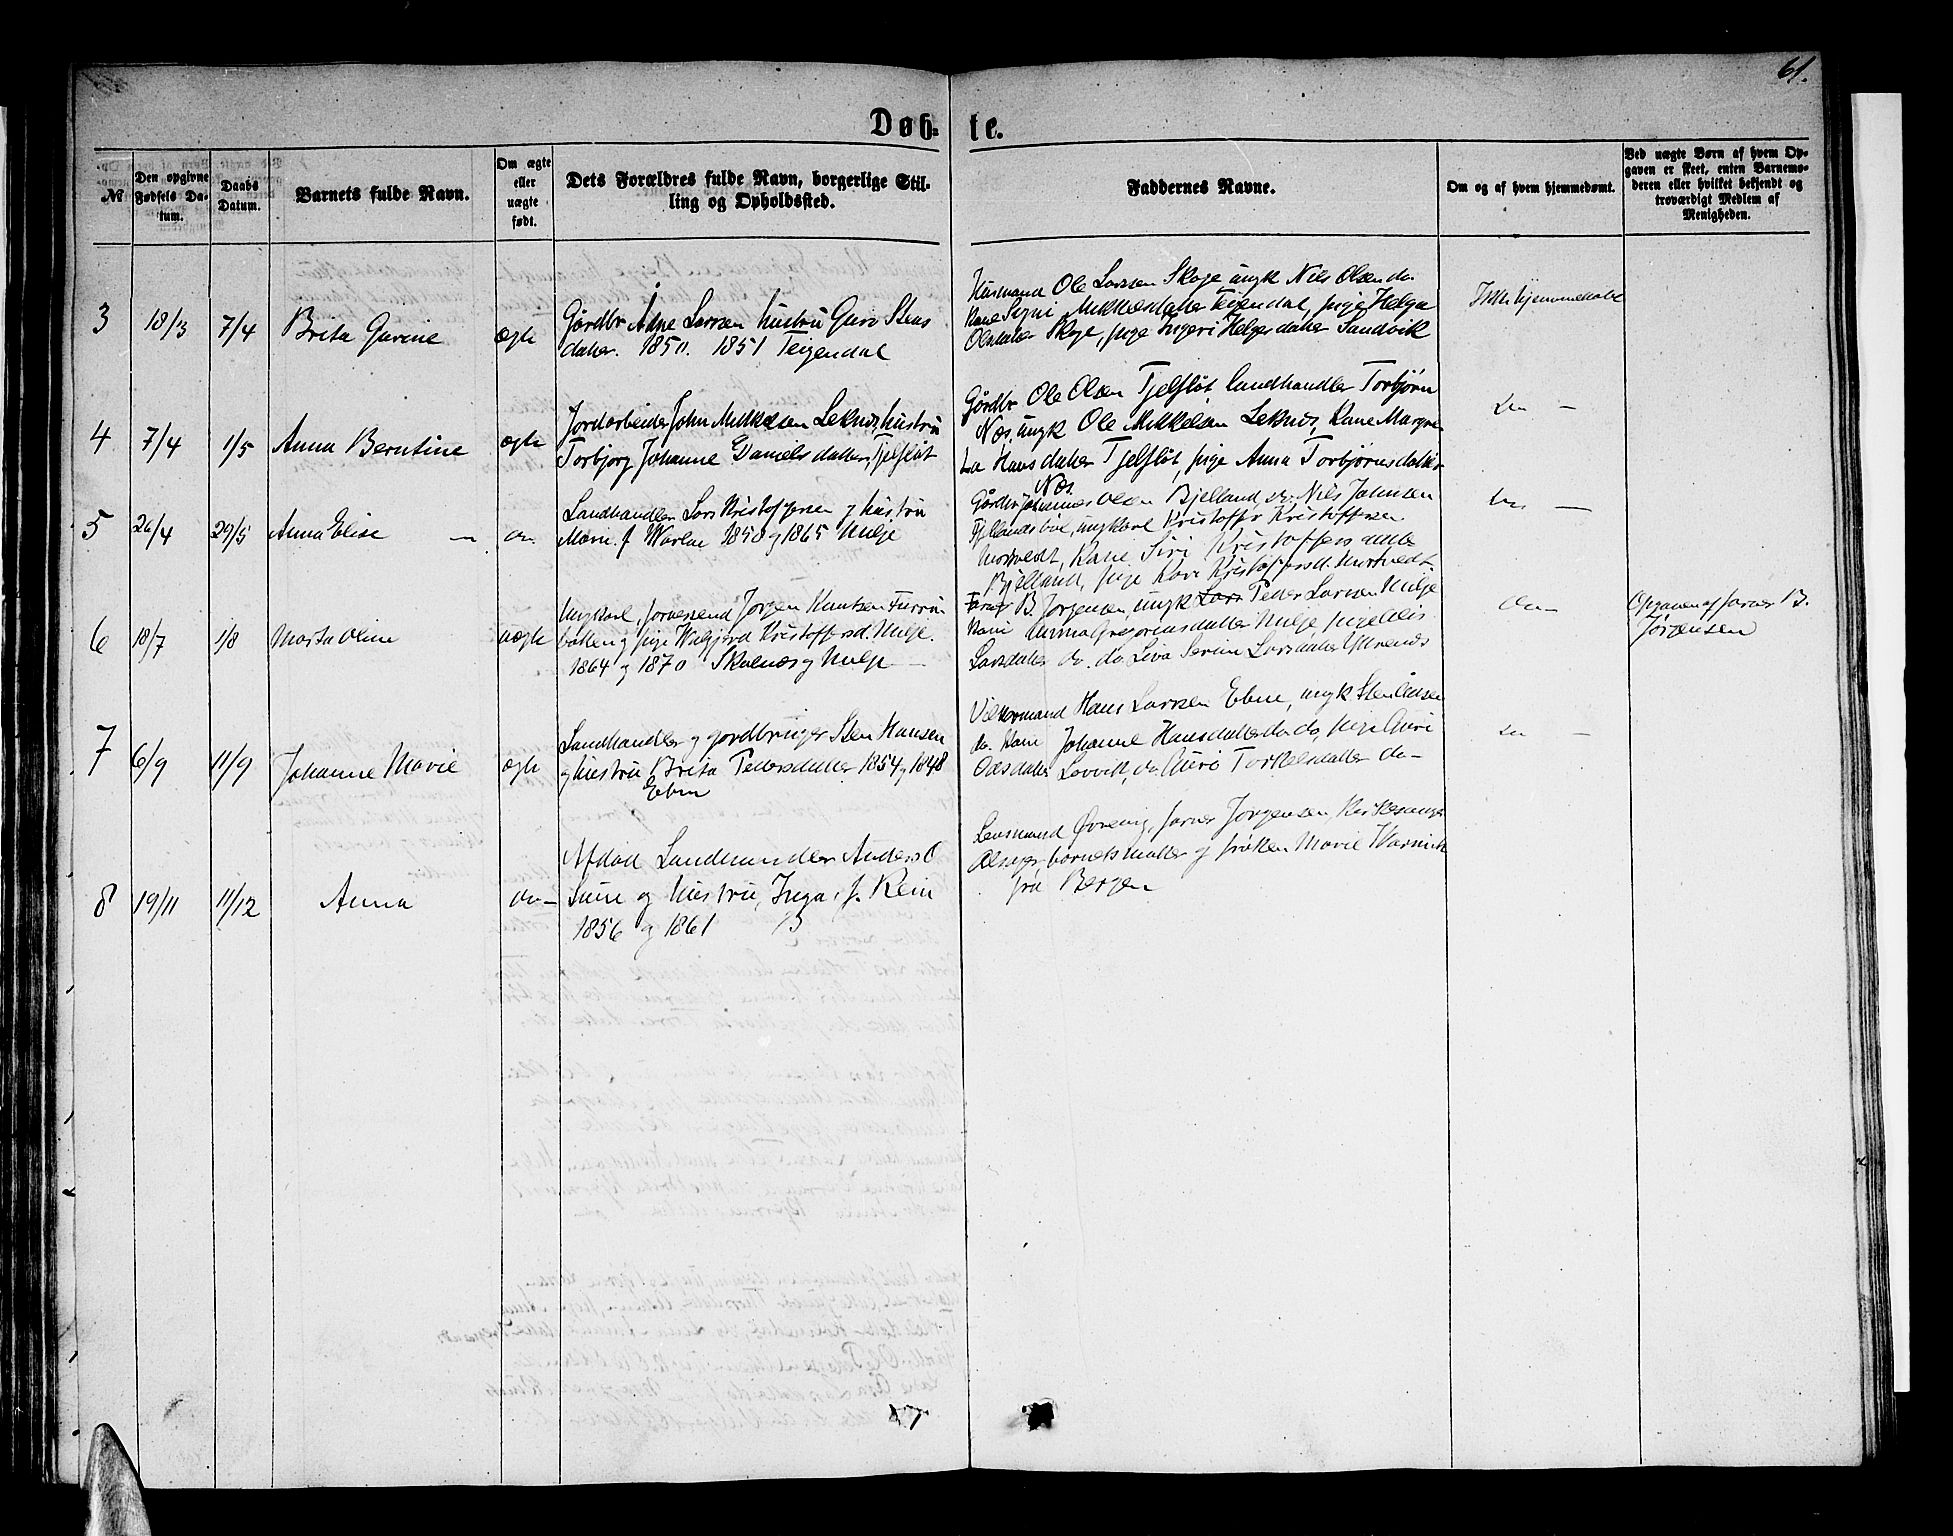 61.
Døb- te.
№
Den opgivne Fødsels Datum.
Daabs Datum.
Barnets fulde Navn.
Om ægte eller uægte født.
Dets Forældres fulde Navn, borgerlige Stilling og Opholdssted.
Faddernes Navne.
Om og af hvem hjemmedømt.
Ved uægte Børn af hvem Opgaven er skeet, enten Barnemoderen eller hvilket bekjendt og troværdigt Medlem af Menigheden.
3 18/3 7/4 Brita Gurine ægte
Gårdbr Adne Larsen hustru Guro Stens
datter. 1850. 1851 Teigendal
Husmand Ole Larsen Skoge ungk Nils Olsen do
Kone Signi Mikkelsdatter Teigendal, pige Helga
Olsdatter Skoge, pige Ingeri Helgesdatter Sandvik
Ikke hjemmedøbt
4 7/4 1/5 Anna Berntine ægte
Jordarbeider John Mikkelsen Leknes, hustru
Torbjorg Johanne Danielsdatter, Tjelflåt
Gårdbr Ole Olsen Tjelflåt landhandler Torbjørn
Næs, ungk Ole Mikkelsen Leknes, Kone Margre
ta Hansdatter Tjelflåt, pige Anna Torbjørnsdatter
Næs
do —
5 26/4 29/5 Anna Elise — do.
Landhandler Lars Kristoffersen og hustru
Marn. f. Warloe 1850 og 1865 Milje
Gårdbr Johannes Olsen Bjelland, do. Nils Johnsen
Fjellandsbøe, ungkarl Kristoffer Kristoffersen
Mortvedt, Kone Siri Kristoffersdatter
Bjelland, pige Kari Kristoffersd. Mortvedt
do —
6 18/7 1/8 Marta Oline uægte
Ungkarl, farveresvend Jørgen Knutsen Furru
bakken og pige Walgjerd Kristoffersd. Milje.
1864 og 1870 Skulenæs og Milje —
Farver B. Jørgensen, ungk Lars Peder Larsen Milje
Kone Anna Gregoriusdatter Milje pige Elis
Larsdatter do. do Liva Serine Larsdatter Ytrenes
do —
Opgaven af farver B.
Jørgensen
7 6/9 11/9 Johanne Marie ægte
Landhandler og gårdbruger Sten Hansen
og hustru Brita Pedersdatter 1854 og 1848
Ebne
Vidermand Hans Larsen Ebne, ungk Sten Olsen
do. Kone Johanne Hansdatter do do, pige Guri
Odsdatter Lovvik, do Guri Torkelsdatter do —
do —
8 19/11 11/12 Anna do —
Afdød Landhandler Anders O
Sune og hustru, Inga, f. Rein
1856 og 1861
Lensmand Øvrevig, farver Jørgensen Kirkesanger
Alsager, barnets moder og frøken Marie Warnick
fra Bergen